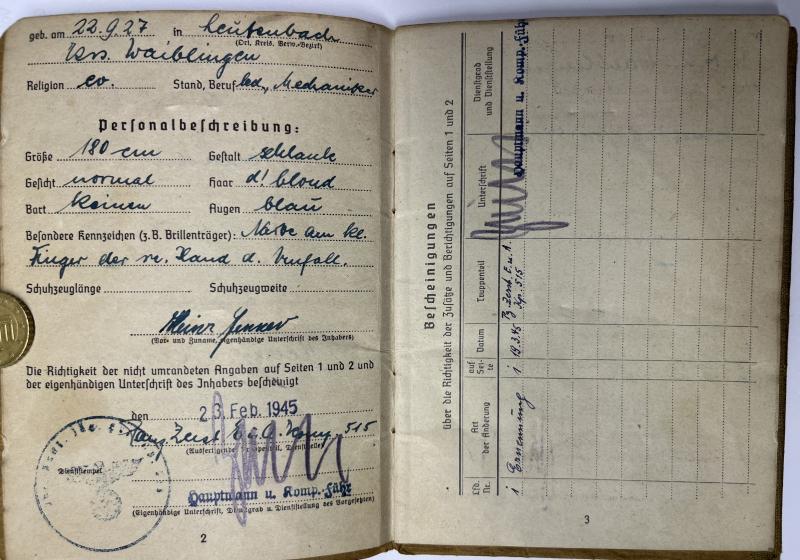 geb. am 22.9.27 in Leutenbach
(Ort, Kreis, Verw.-Bezirk)
Krs. Waiblingen
Religion ev. Stand, Beruf led., Mechaniker
Personalbeschreibung:
Größe 180 cm Gestalt schlank
Gesicht normal Haar d'blond
Bart keinen Augen blau
Besondere Kennzeichen (z.B. Brillenträger): Narbe am kl.
Finger der re. Hand d. Unfall.
Schuhzeuglänge Schuhzeugweite
Heinz
(Vor- und Zuname, eigenhändige Unterschrift des Inhabers)
Die Richtigkeit der nicht umrandeten Angaben auf Seiten 1 und 2 und
der eigenhändigen Unterschrift des Inhabers bescheinigt
den 23. Feb. 1945
Panz. Zerst. E. u. A. Komp. 515
(Ausfertigender Truppenteil, Dienststelle)
Dienststempel
Hauptmann u. Komp.-Führ.
(Eigenhändige Unterschrift, Dienstgrad u. Dienststellung des Vorgesetzten)
2
Bescheinigungen
über die Richtigkeit der Zusätze und Berichtigungen auf Seiten 1 und 2
Lfd. Nr.
Art der Änderung
auf Seite
Datum
Truppenteil
Unterschrift
Dienstgrad und Dienststellung
1 Ernennung 1 19.3.45 Pz. Zerst. E. u. A. Kp. 515
Hauptmann u. Komp.-Führ
3